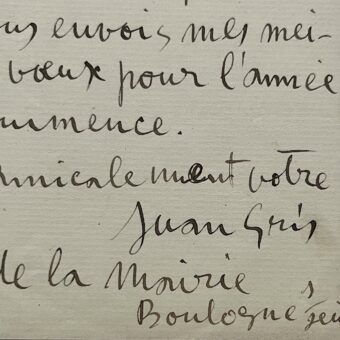 us envois mes mei-
vœux pour l'année
mmence.
micalement votre
Juan Gris
de la Mairie
Boulogne s/sei